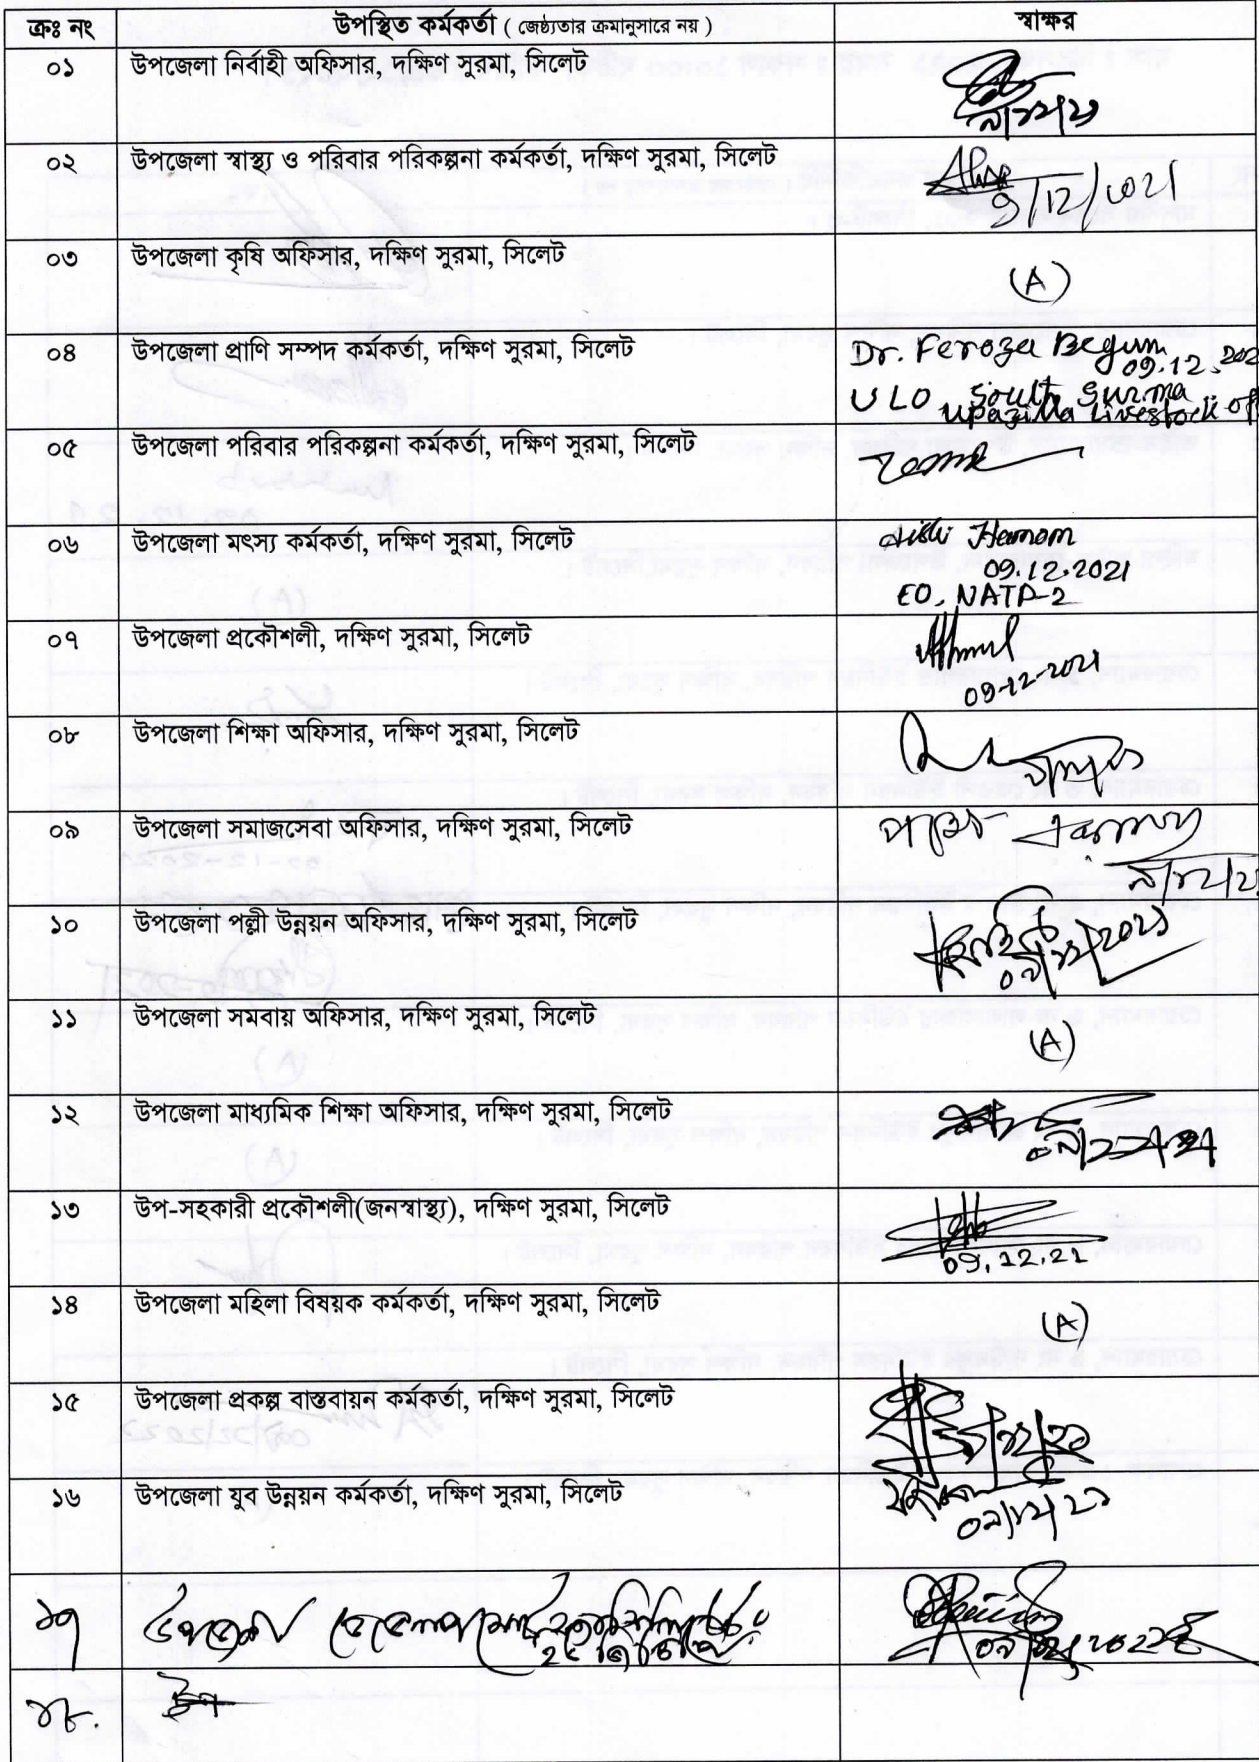 ক্রঃ নং উপস্থিত কর্মকর্তা ( জেষ্ঠ্যতার ক্রমানুসারে নয় ) স্বাক্ষর
০১ উপজেলা নির্বাহী অফিসার, দক্ষিণ সুরমা, সিলেট
০২ উপজেলা স্বাস্থ্য ও পরিবার পরিকল্পনা কর্মকর্তা, দক্ষিণ সুরমা, সিলেট
9/12/2021
০৩ উপজেলা কৃষি অফিসার, দক্ষিণ সুরমা, সিলেট
(A)
০৪ উপজেলা প্রাণি সম্পদ কর্মকর্তা, দক্ষিণ সুরমা, সিলেট Dr. Feroza Begum
09.12.202
ULO South Surma
upazilla Livestock off
০৫ উপজেলা পরিবার পরিকল্পনা কর্মকর্তা, দক্ষিণ সুরমা, সিলেট
০৬ উপজেলা মৎস্য কর্মকর্তা, দক্ষিণ সুরমা, সিলেট
09.12.2021
EO, NATP-2
০৭ উপজেলা প্রকৌশলী, দক্ষিণ সুরমা, সিলেট
09-12-2021
০৮ উপজেলা শিক্ষা অফিসার, দক্ষিণ সুরমা, সিলেট
০৯ উপজেলা সমাজসেবা অফিসার, দক্ষিণ সুরমা, সিলেট
১০ উপজেলা পল্লী উন্নয়ন অফিসার, দক্ষিণ সুরমা, সিলেট
১১ উপজেলা সমবায় অফিসার, দক্ষিণ সুরমা, সিলেট
(A)
১২ উপজেলা মাধ্যমিক শিক্ষা অফিসার, দক্ষিণ সুরমা, সিলেট
১৩ উপ-সহকারী প্রকৌশলী(জনস্বাস্থ্য), দক্ষিণ সুরমা, সিলেট
09.12.21
১৪ উপজেলা মহিলা বিষয়ক কর্মকর্তা, দক্ষিণ সুরমা, সিলেট
(A)
১৫ উপজেলা প্রকল্প বাস্তবায়ন কর্মকর্তা, দক্ষিণ সুরমা, সিলেট
১৬ উপজেলা যুব উন্নয়ন কর্মকর্তা, দক্ষিণ সুরমা, সিলেট
০৯/১২/২১
১৭ উপজেলা
১৮.